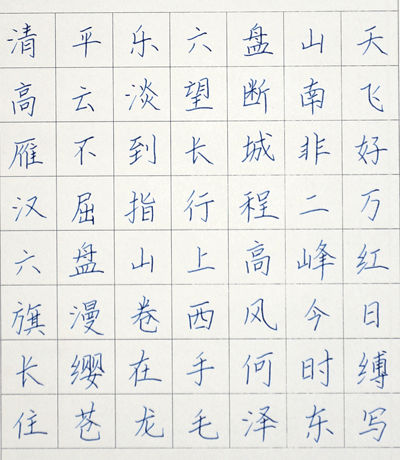 清平乐六盘山天
高云淡望断南飞
雁不到长城非好
汉屈指行程二万
六盘山上高峰红
旗漫卷西风今日
长缨在手何时缚
住苍龙毛泽东写